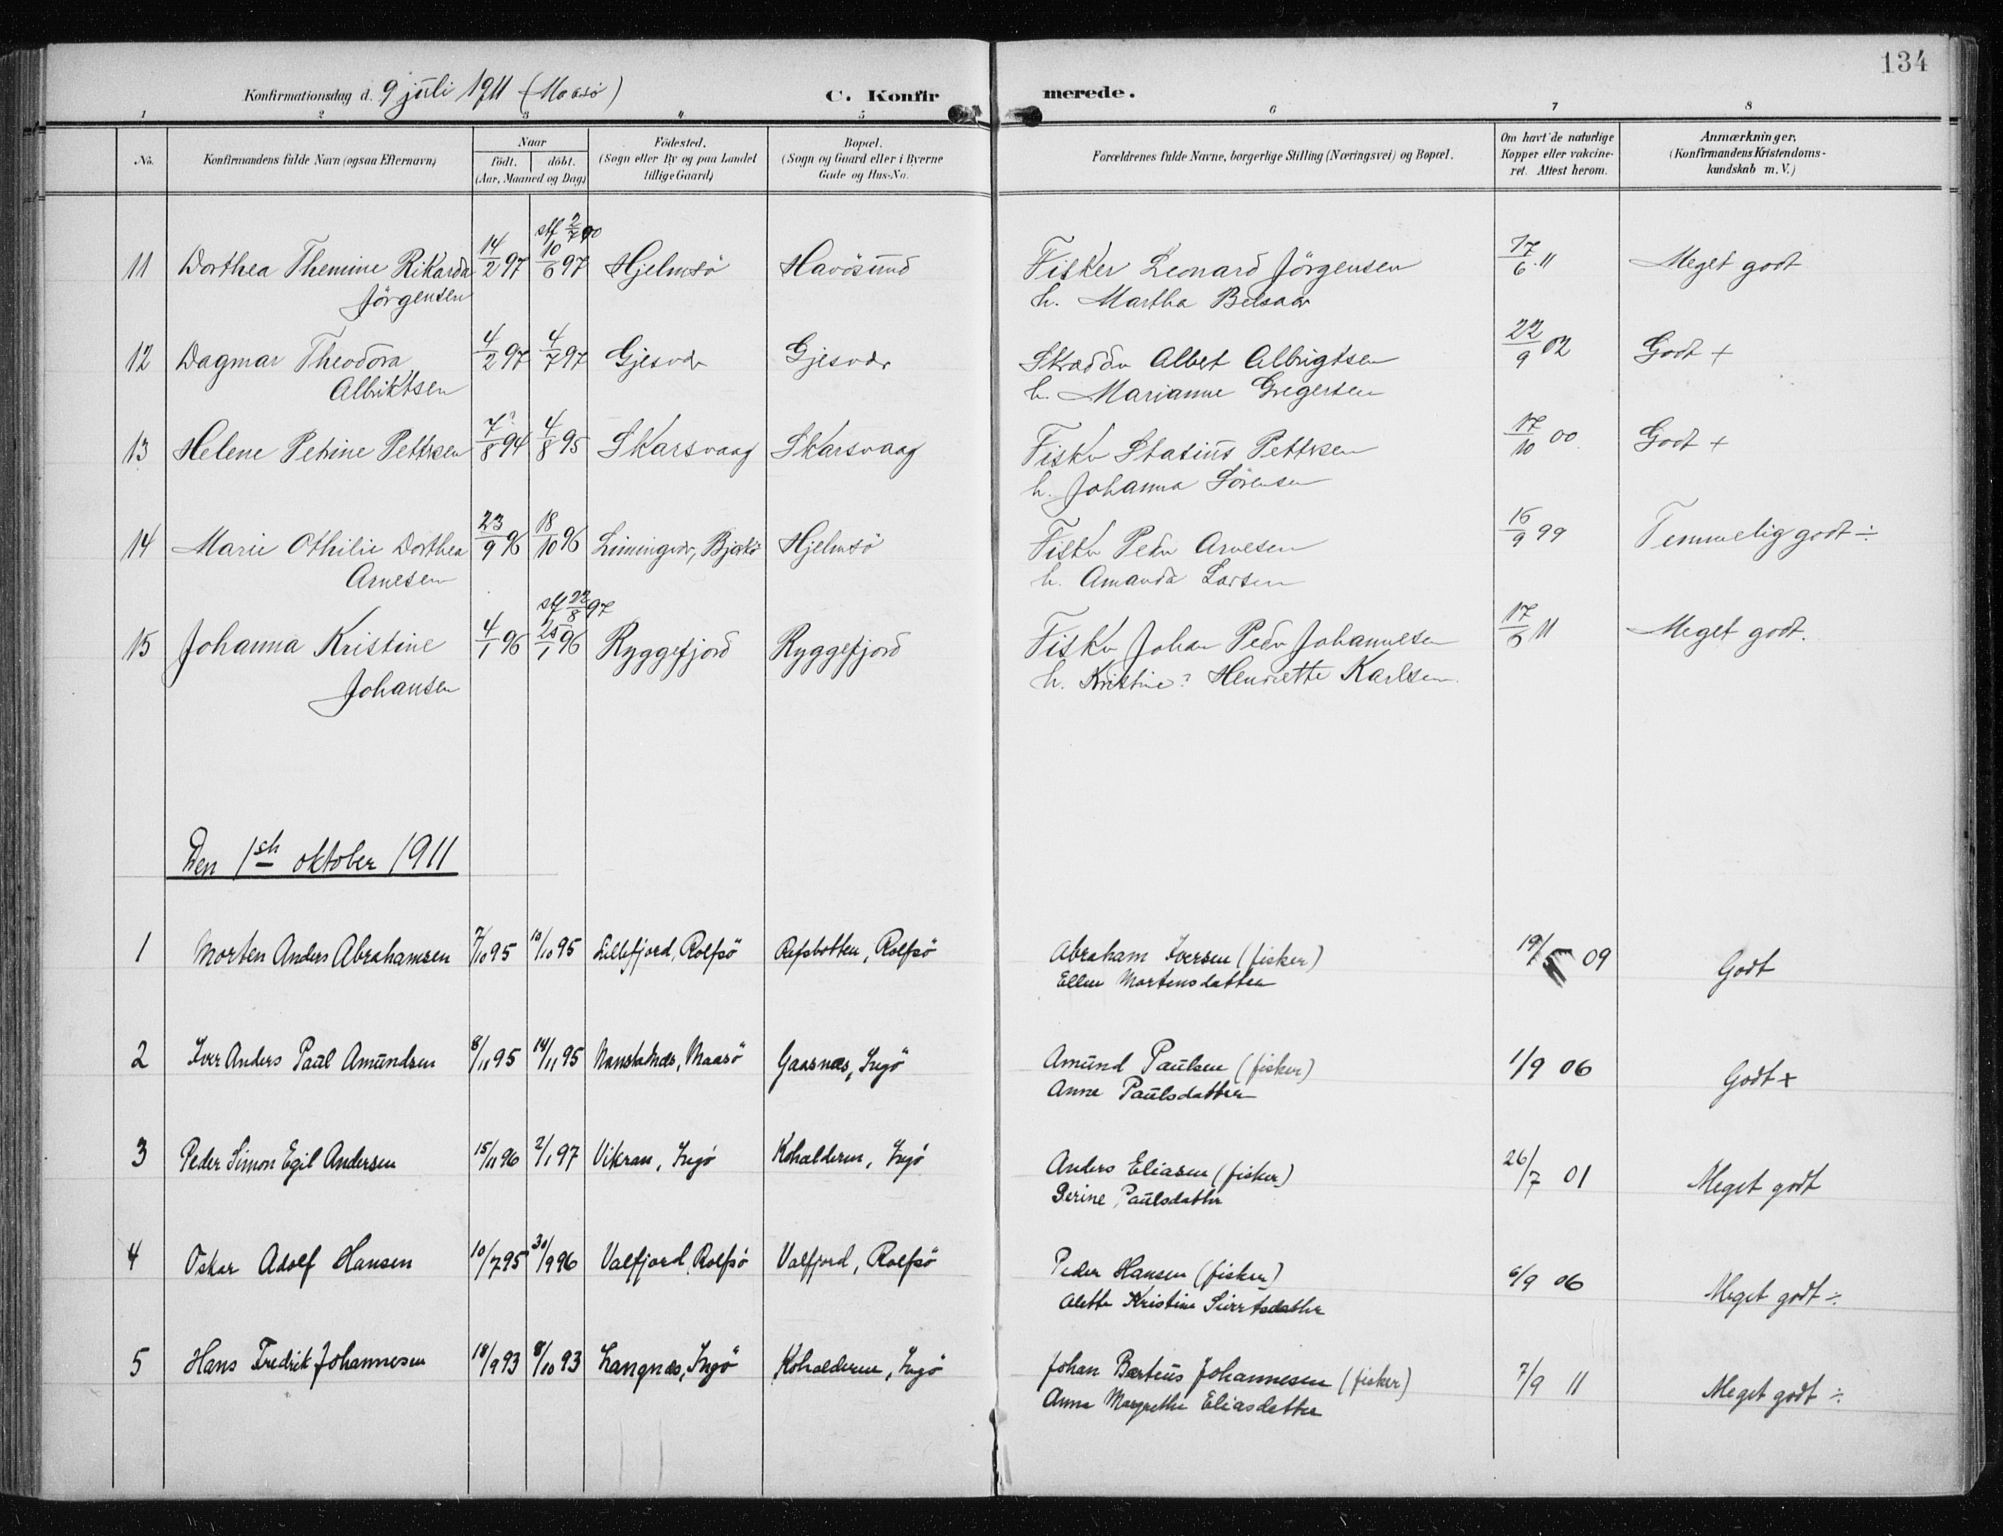 134
Konfirmationsdag d. 9 juli 1911 (Maasø)
C. Konfirmerede.
1 2 3 4 5 6 7 8
No.
Konfirmandens fulde Navn (ogsaa Efternavn)
Naar
födt.
döbt.
(Aar, Maaned og Dag)
Födested.
(Sogn eller By og paa Landet
tillige Gaard)
Bopæl.
(Sogn og Gaard eller i Byerne
Gade og Hus-No.
Forældrenes fulde Navne, borgerlige Stilling (Næringsvei) og Bopæl.
Om havt de naturlige
Kopper eller vakcine-
ret. Attest herom.
Anmærkninger.
(Konfirmandens Kristendoms-
kundskab m. V.)
stf 2/7 00
11 Dorthea Themine Rikarda 14/2 97 10/6 97 Hjelmsö Havösund Fisker Leonard Jörgensen 17/6 11 Meget godt
Jörgensen h. Martha
12 Dagmar Theodora 4/2 97 4/7 97 Gjesvær Gjesvær Skrædder Albert Albrigtsen 22/9 02 Godt +
Albriktsen h. Marianne Gregersen
13 Helene Petrine Pettersen 7/8 94 4/8 95 Skarsvaag Skarsvaag Fisker Stasius Pettersen 17/10 00 Godt +
h. Johanna Sörensen
14 Marie Othilie Dorthea 23/9 96 18/10 96 Hjelmsö Fisker Peder Arnesen 16/9 99 Temmelig godt ÷
Arnesen h. Amanda Larsen
stf 22/8 97
15 Johanna Kristine 4/1 96 25/1 96 Ryggefjord Ryggefjord Fisker Johan Peder Johannesen 17/6 11 Meget godt.
Johansen h. Kristine? Henriette Karlsen.
Den 1ste oktober 1911
1 Morten Anders Abrahamsen 7/10 95 10/10 95 Lillefjord, Rolfsö Refsbotten, Rolfsö Abraham Iversen (fisker) 19/5 09 Godt
Ellen Mortensdatter
2 Iver Anders Paul Amundsen 8/11 95 14/11 95 Maasö Gaasnæs, Ingö Amund Paulsen (fisker) 1/9 06 Godt +
Anne Paulsdatter
3 Peder Simon Egil Andersen 15/11 96 2/1 97 Vikran, Ingö Kohalderen, Ingö Anders Eliasen (fisker) 26/7 01 Meget godt
Serine Paulsdatter
4 Oskar Adolf Hansen 10/7 95 30/9 96 Valfjord, Rolfsö Valfjord, Rolfsö Peder Hansen (fisker) 6/9 06 Meget godt ÷
Alette Kristine Siversdatter
5 Hans Fredrik Johannesen 18/9 93 8/10 93 Langnæs, Ingö Kohalderen, Ingö Johan Bærtius Johannesen (fisker) 7/9 11 Meget godt ÷
Anna Margrethe Eliasdatter